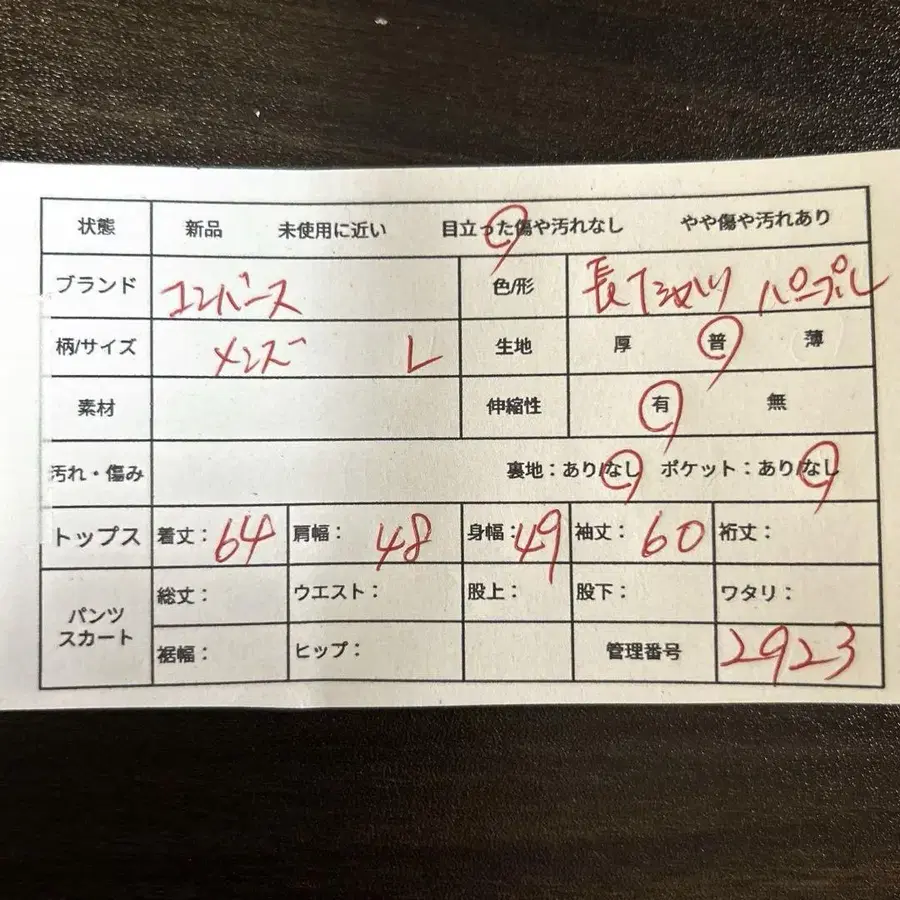 状態 新品 未使用に近い 目立った傷や汚れなし やや傷や汚れあり
ブランド コンバース 色/形 長Tシャツ パープル
柄/サイズ メンズ L 生地 厚 普 薄
素材 伸縮性 有 無
汚れ・傷み 裏地：あり/なし ポケット：あり/なし
トップス 着丈：64 肩幅：48 身幅：49 袖丈：60 裄丈：
パンツ スカート 総丈： ウエスト： 股上： 股下： ワタリ：
裾幅： ヒップ： 管理番号 2923